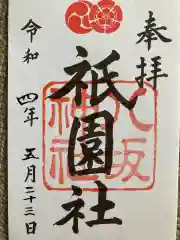 奉拝
八坂
神社
祇園社
令和四年五月二十三日